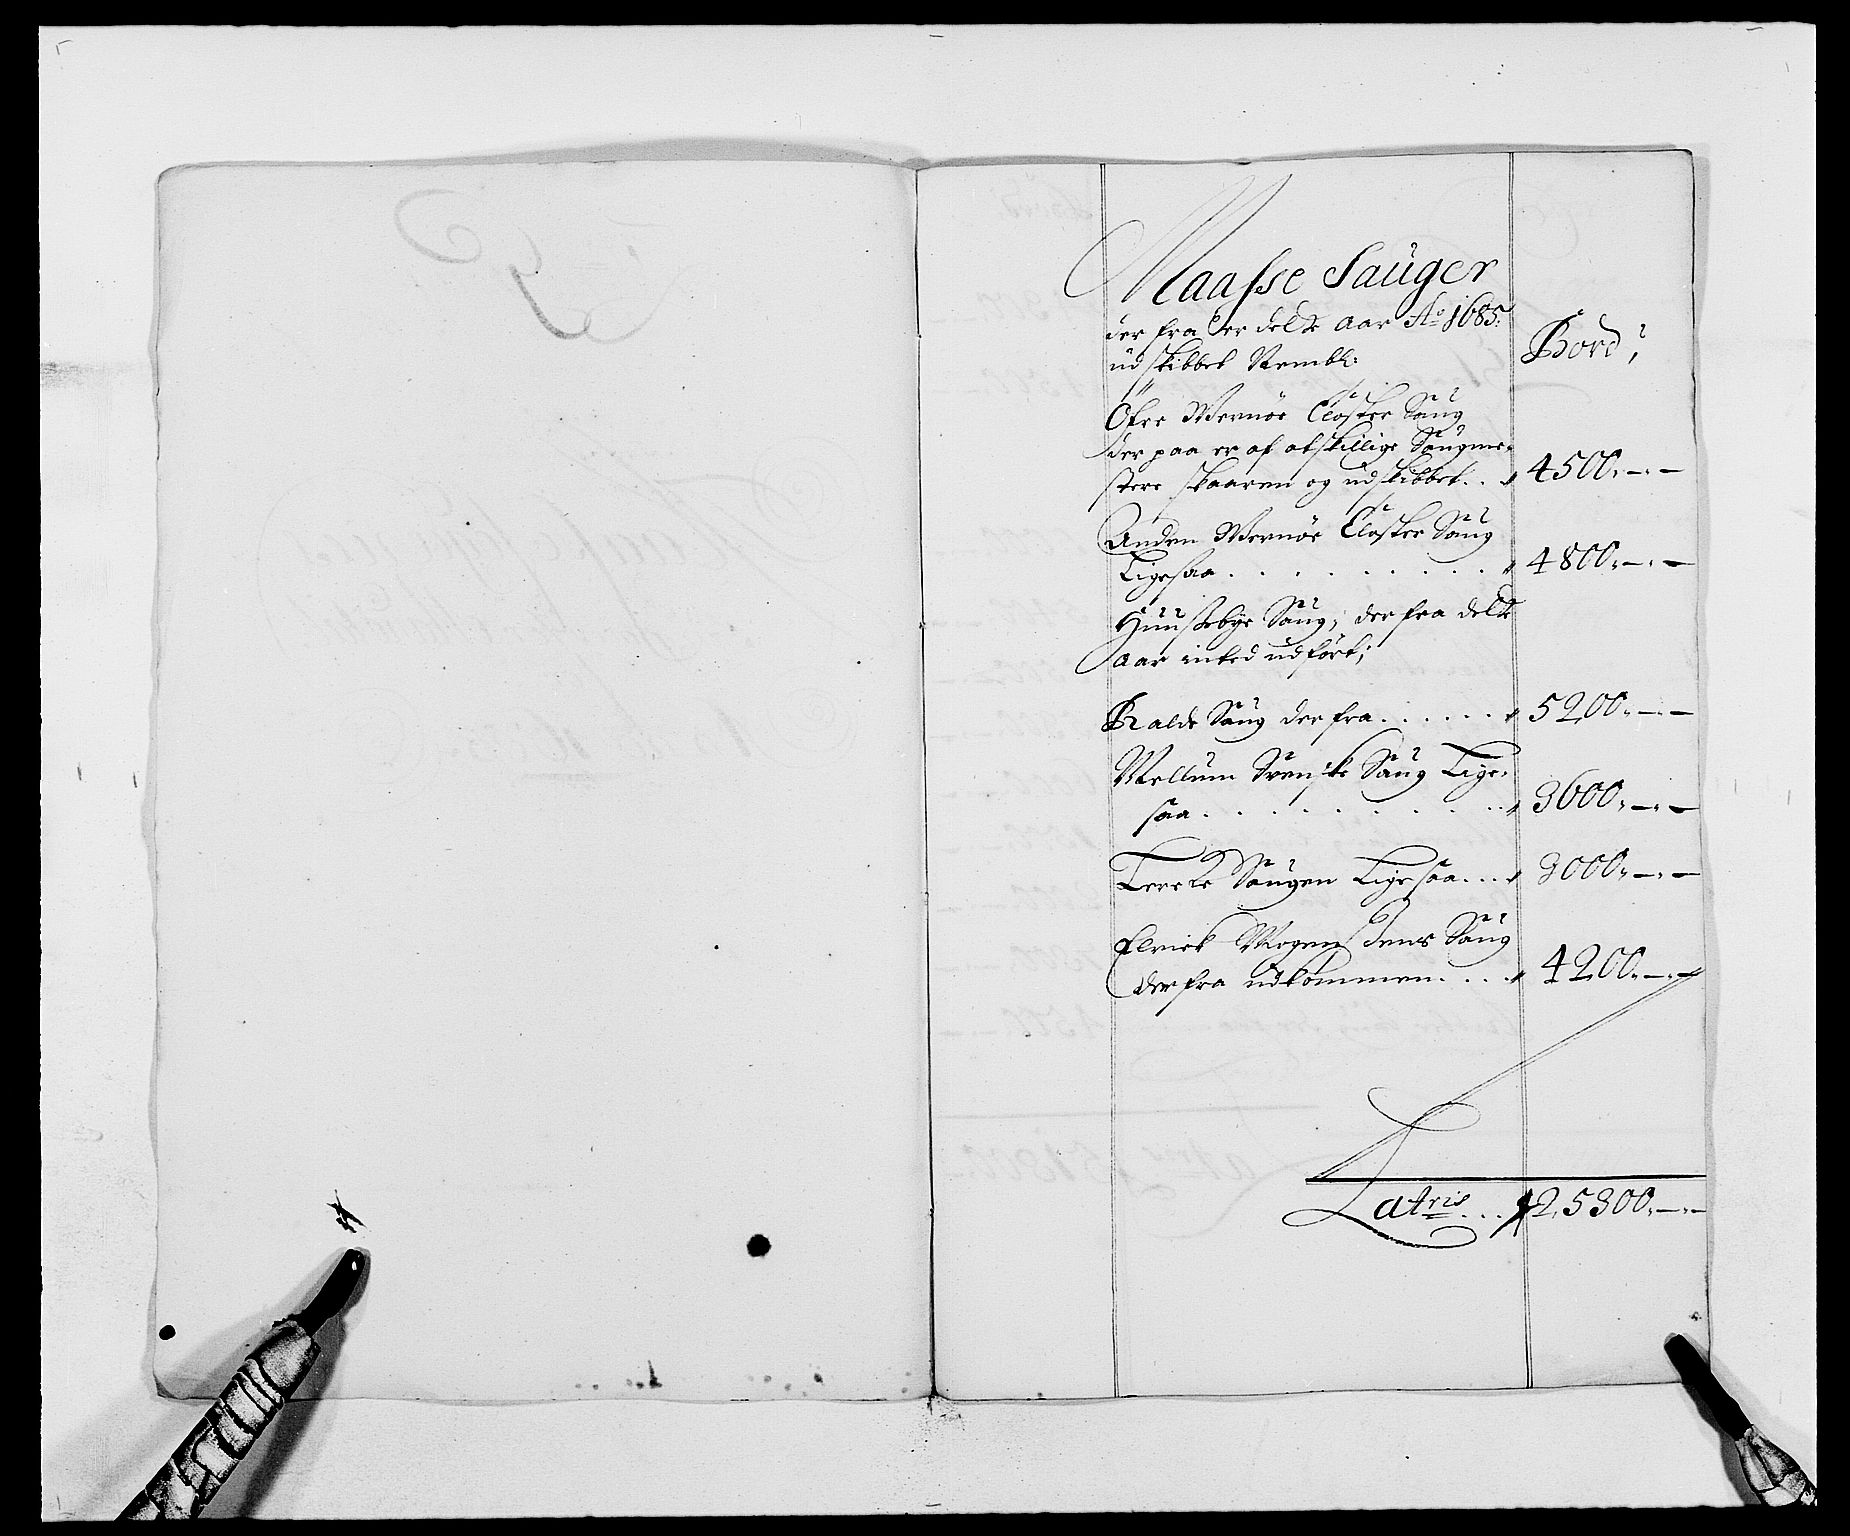 Maasse Sauger
der fra er dette Aar Ao 1685:
udskibbet Nembl:
Bord;
Öfre Wernøe Closter Saug
der paa er af atskillige Saugme-
stere skaaren og udskibbet . . 4500,-,-
Anden Wernøe Closter Saug
Ligesaa . . . . . . . . . 4800,-,-
Huusebye Saug, der fra dette
Aar inted udført;
Balde Saug der fra . . . . . . 5200,-,-
Mellum Svenske Saug Lige-
saa . . . . . . . . . . . 3600,-,-
Saugen Ligesaa . . . 3000,-,-
Mogensens Saug
der fra udkommen . . . . 4200,-,-
Latris . . . 25300,-,-